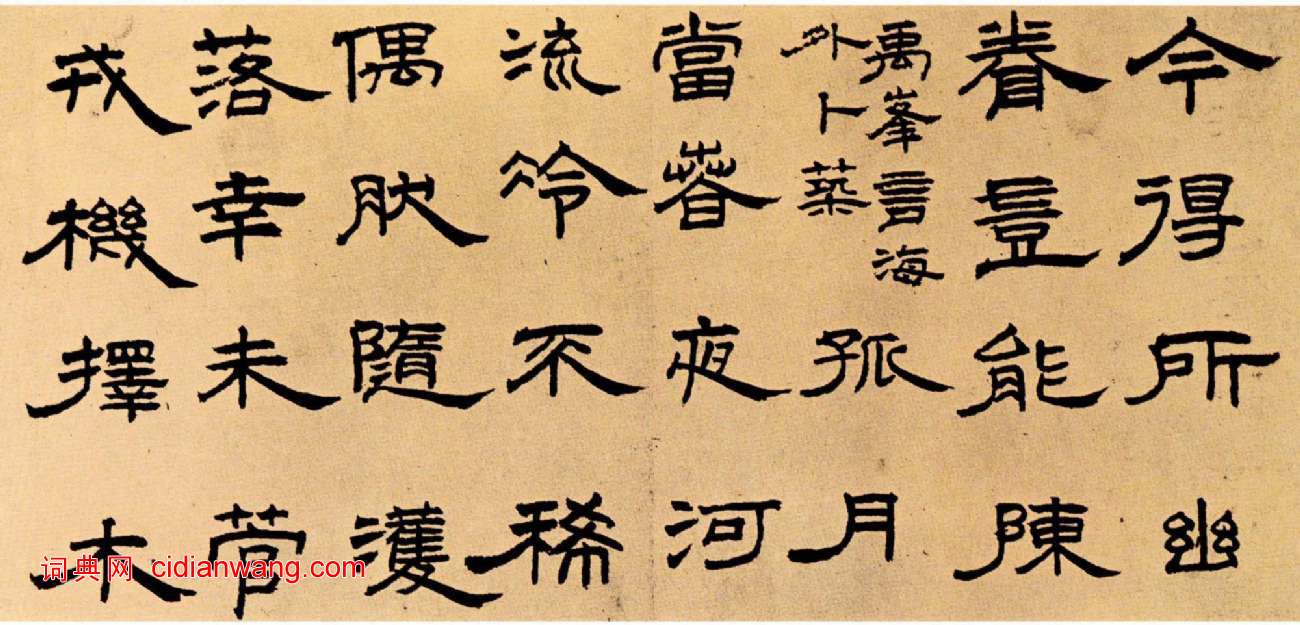 今得所幽
眷豈能陳
禹峯言海
外卜築
孤月
當春夜河
流冷不稀
偶肰隨濩
落幸未营
戎機擇木
词典网 cidianwang.com